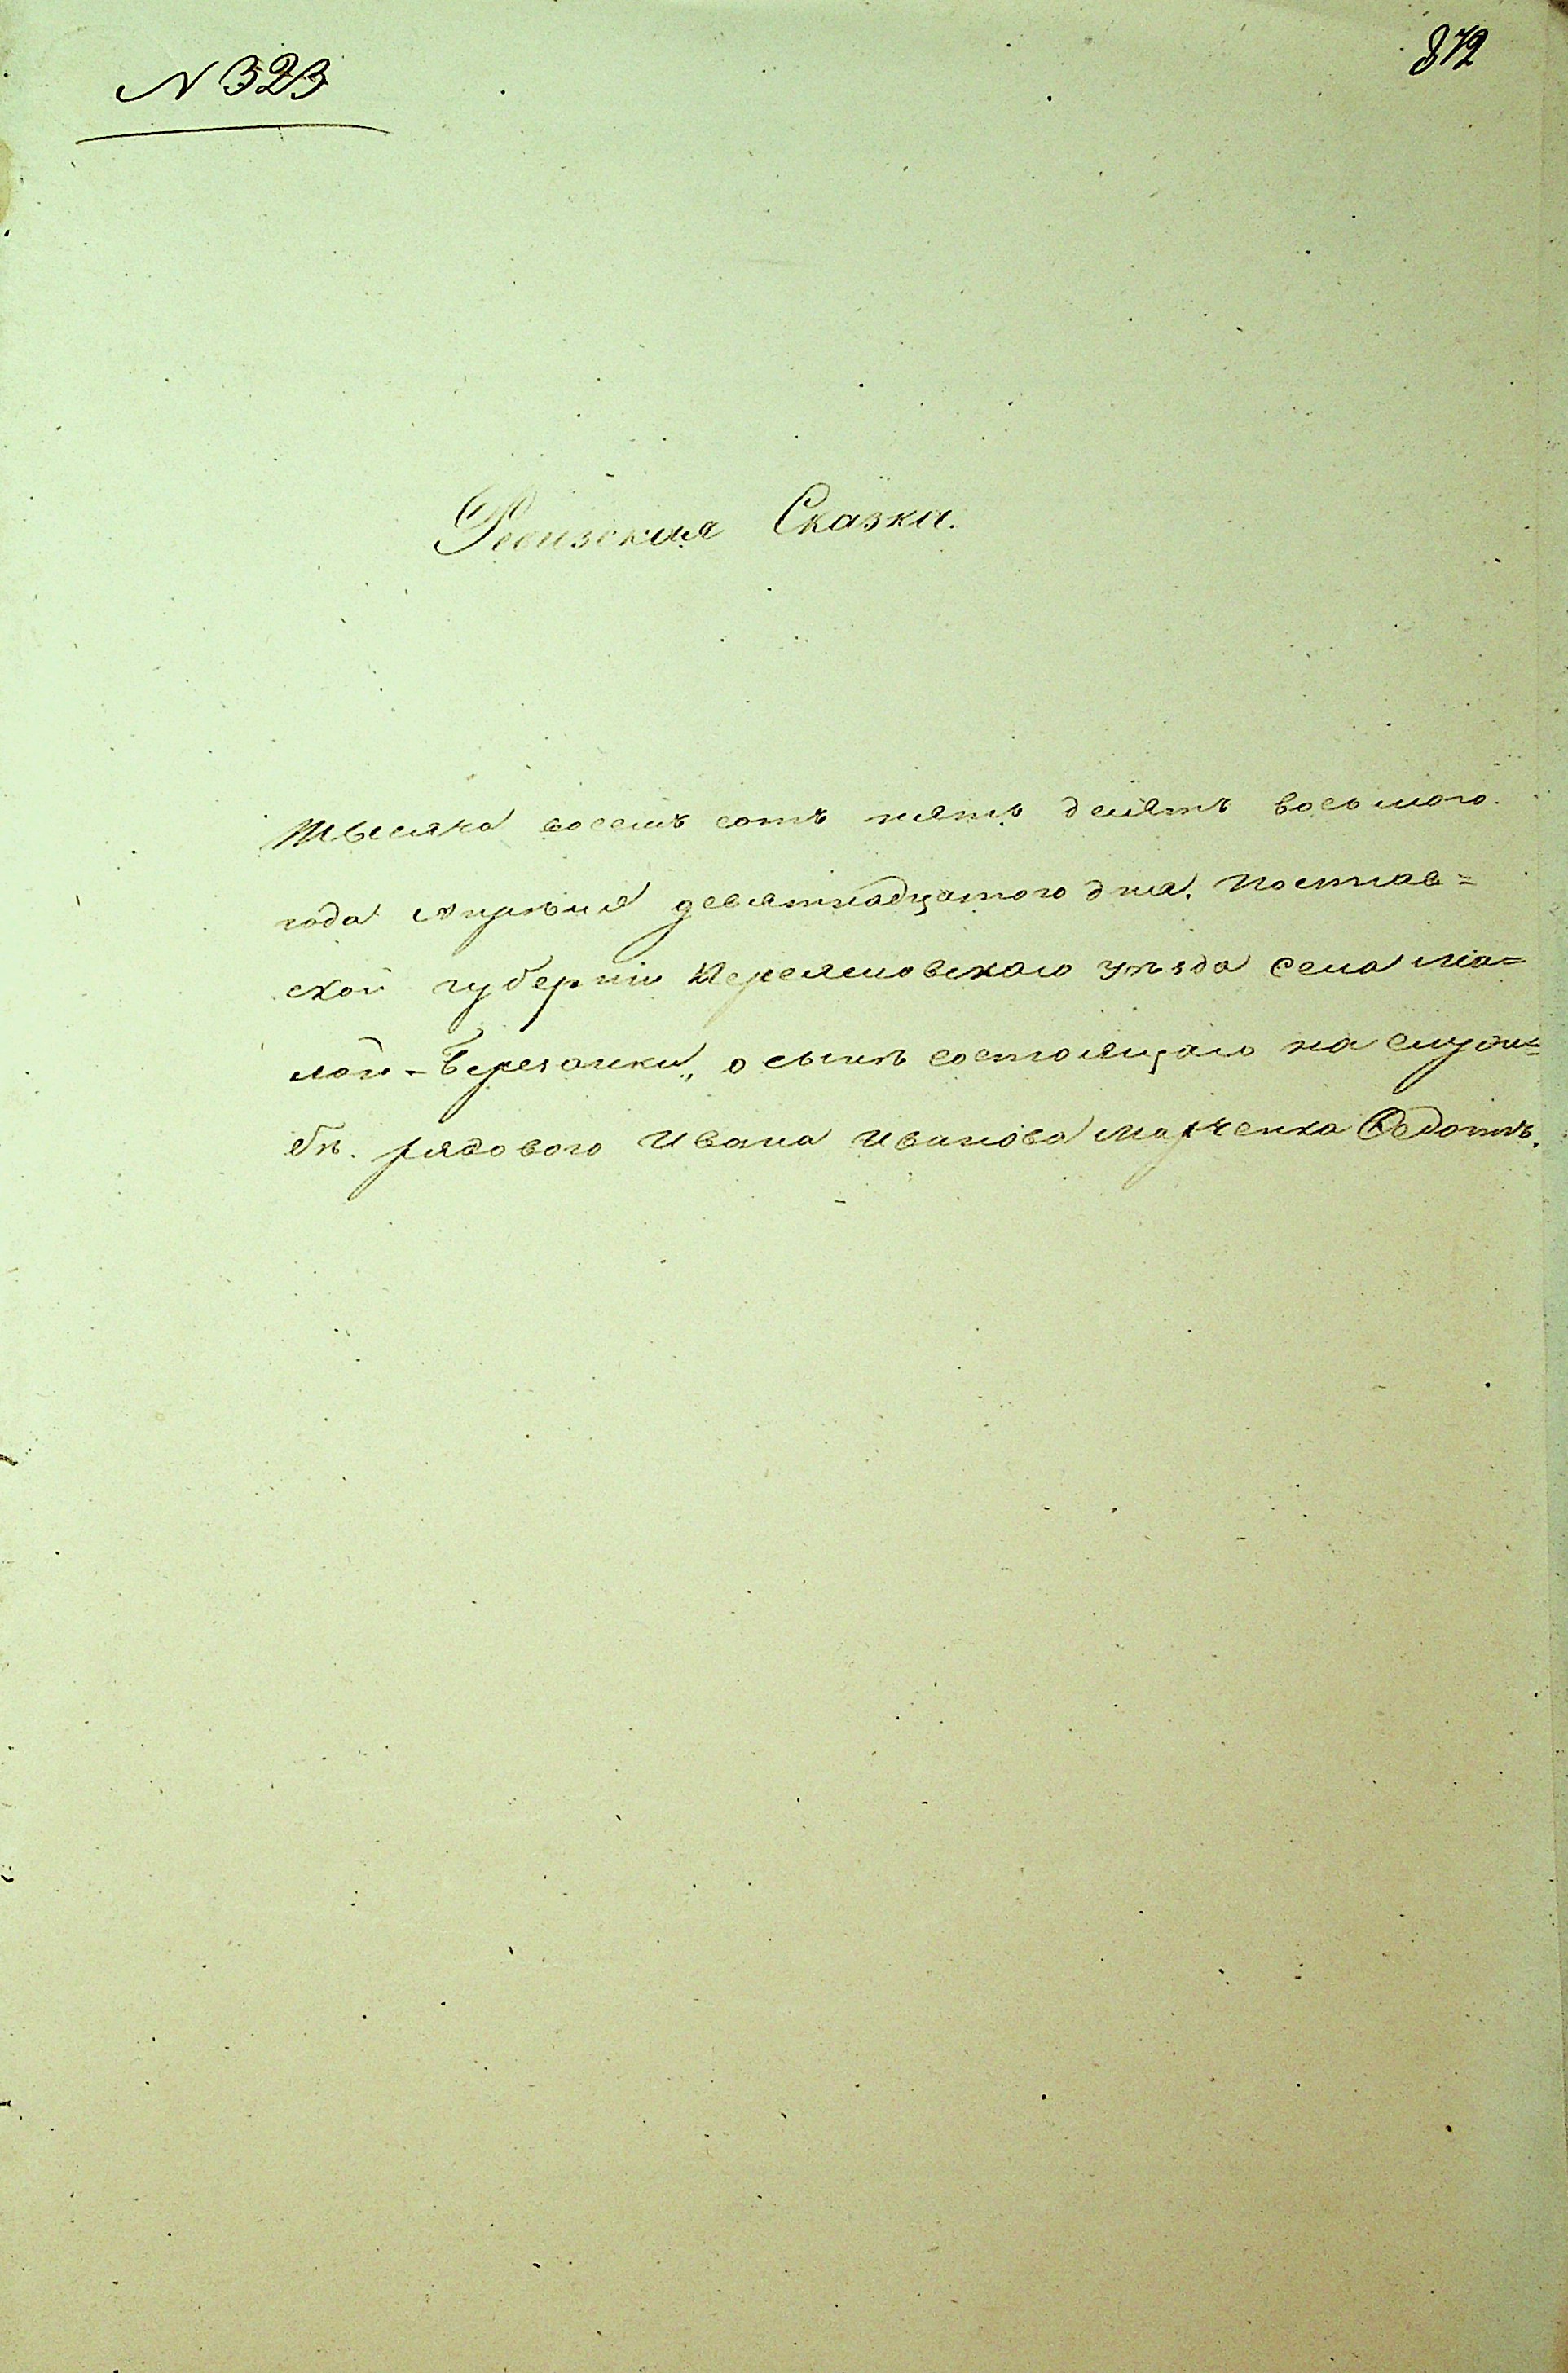 N 323
872
Ревизская Сказка.
Тысяча восемъ сотъ пять десятъ восьмого
года Апрѣля девятнадцатого дня. Полтав=
ской губерніи Переяславскаго уѣзда села Ма=
лой-Березанки, о сынѣ состоящаго на служ=
бѣ. рядового Ивана Иванова Марченка Ѳедотѣ.